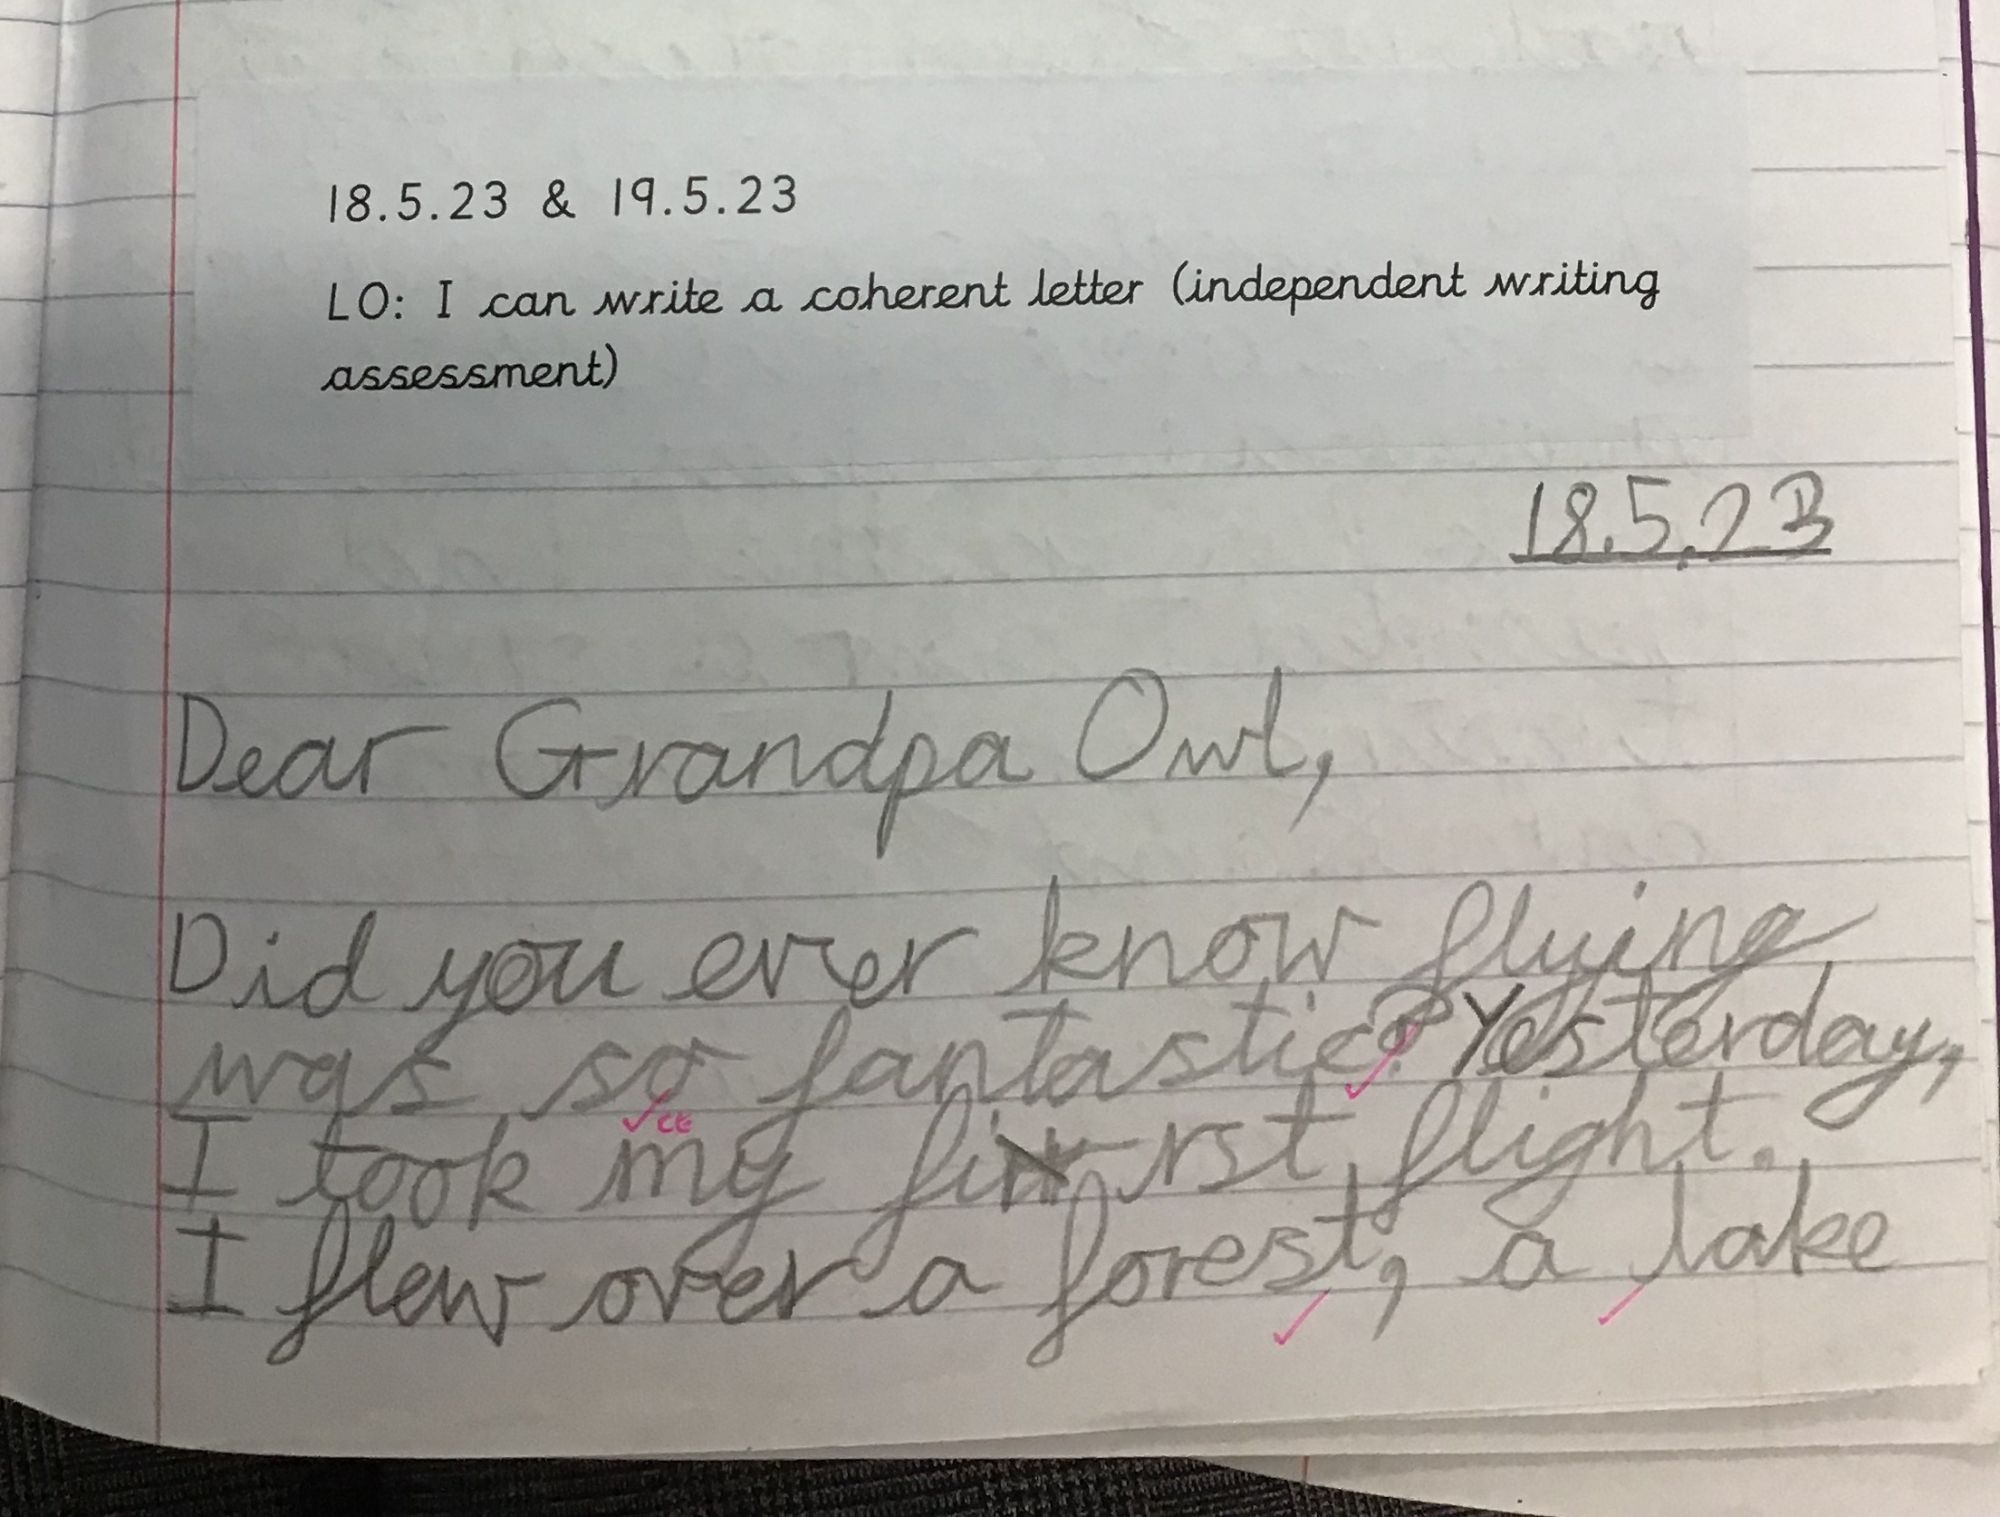 18.5.23 & 19.5.23
LO: I can write a coherent letter (independent writing
assessment)
18.5.23
Dear Grandpa Owl,
Did you ever know flying
was so fantastic? Yesterday,
I took my first flight.
I flew over a forest, a lake